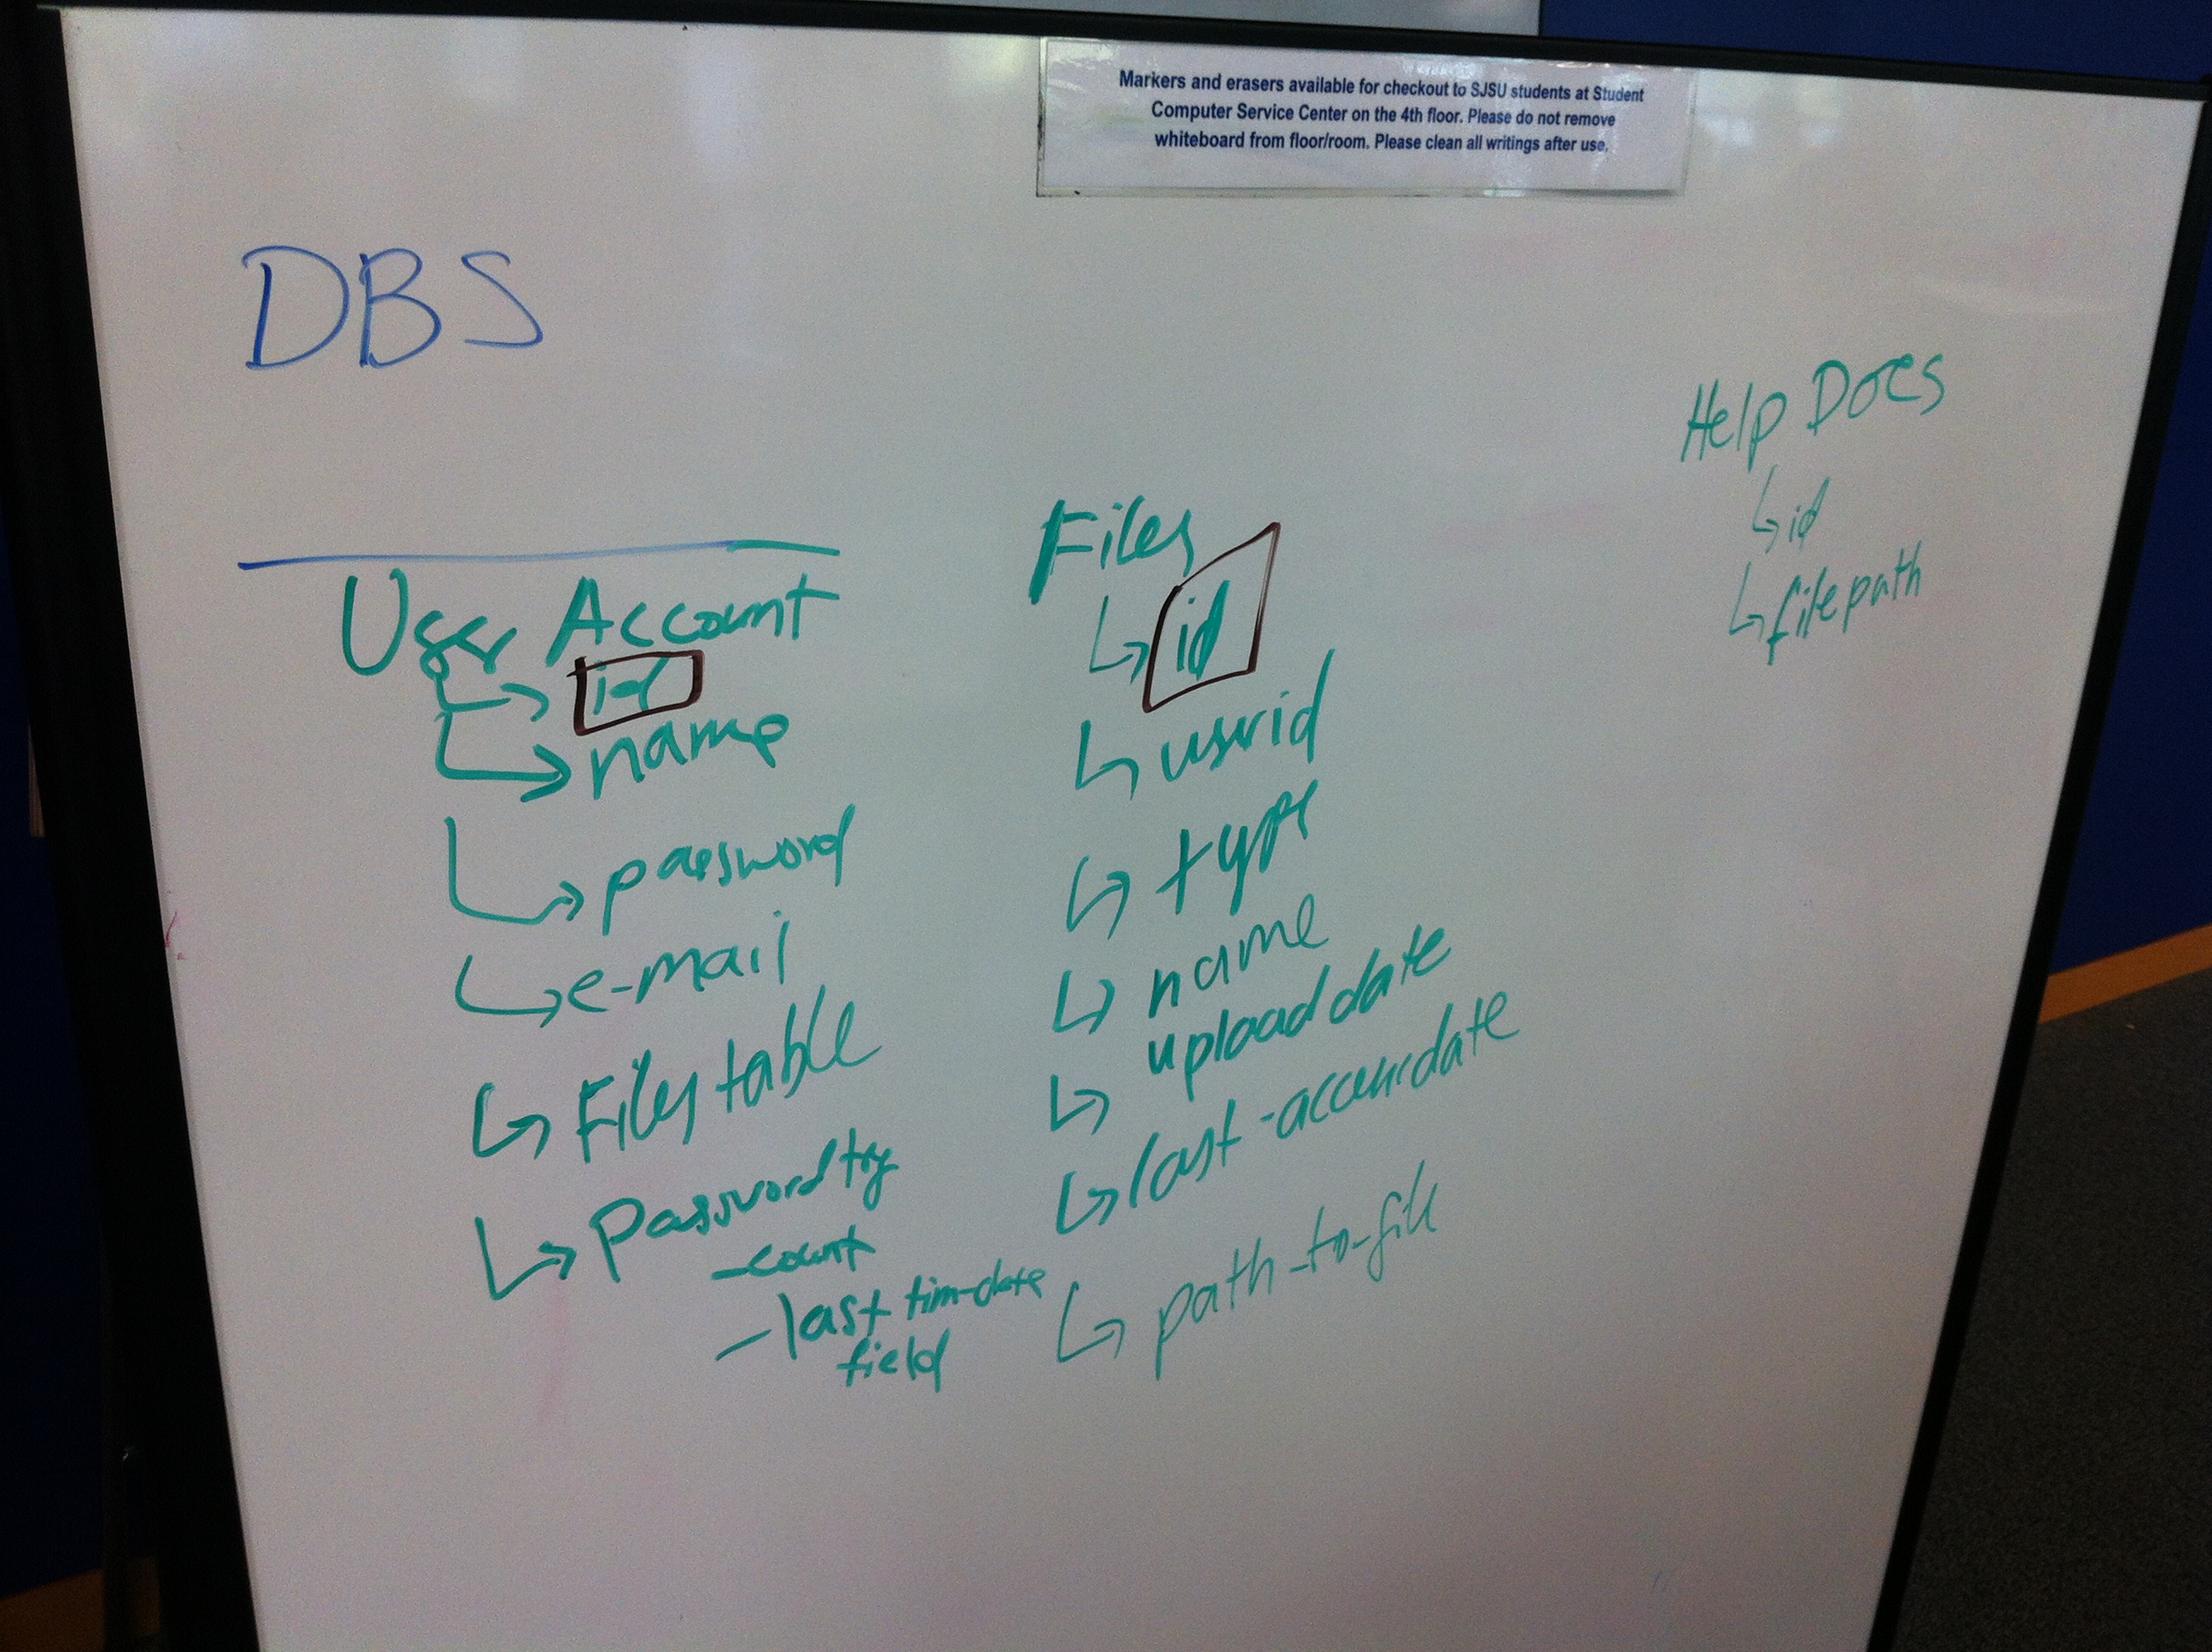 Markers and erasers available for checkout to SJSU students at Student
Computer Service Center on the 4th floor. Please do not remove
whiteboard from floor/room. Please clean all writings after use.
DBS
User Account
id
name
password
e-mail
Files table
Password try
-count
-last tim-date
field
Files
id
usrid
type
name
upload date
last-accessdate
path-to-file
Help Docs
id
filepath